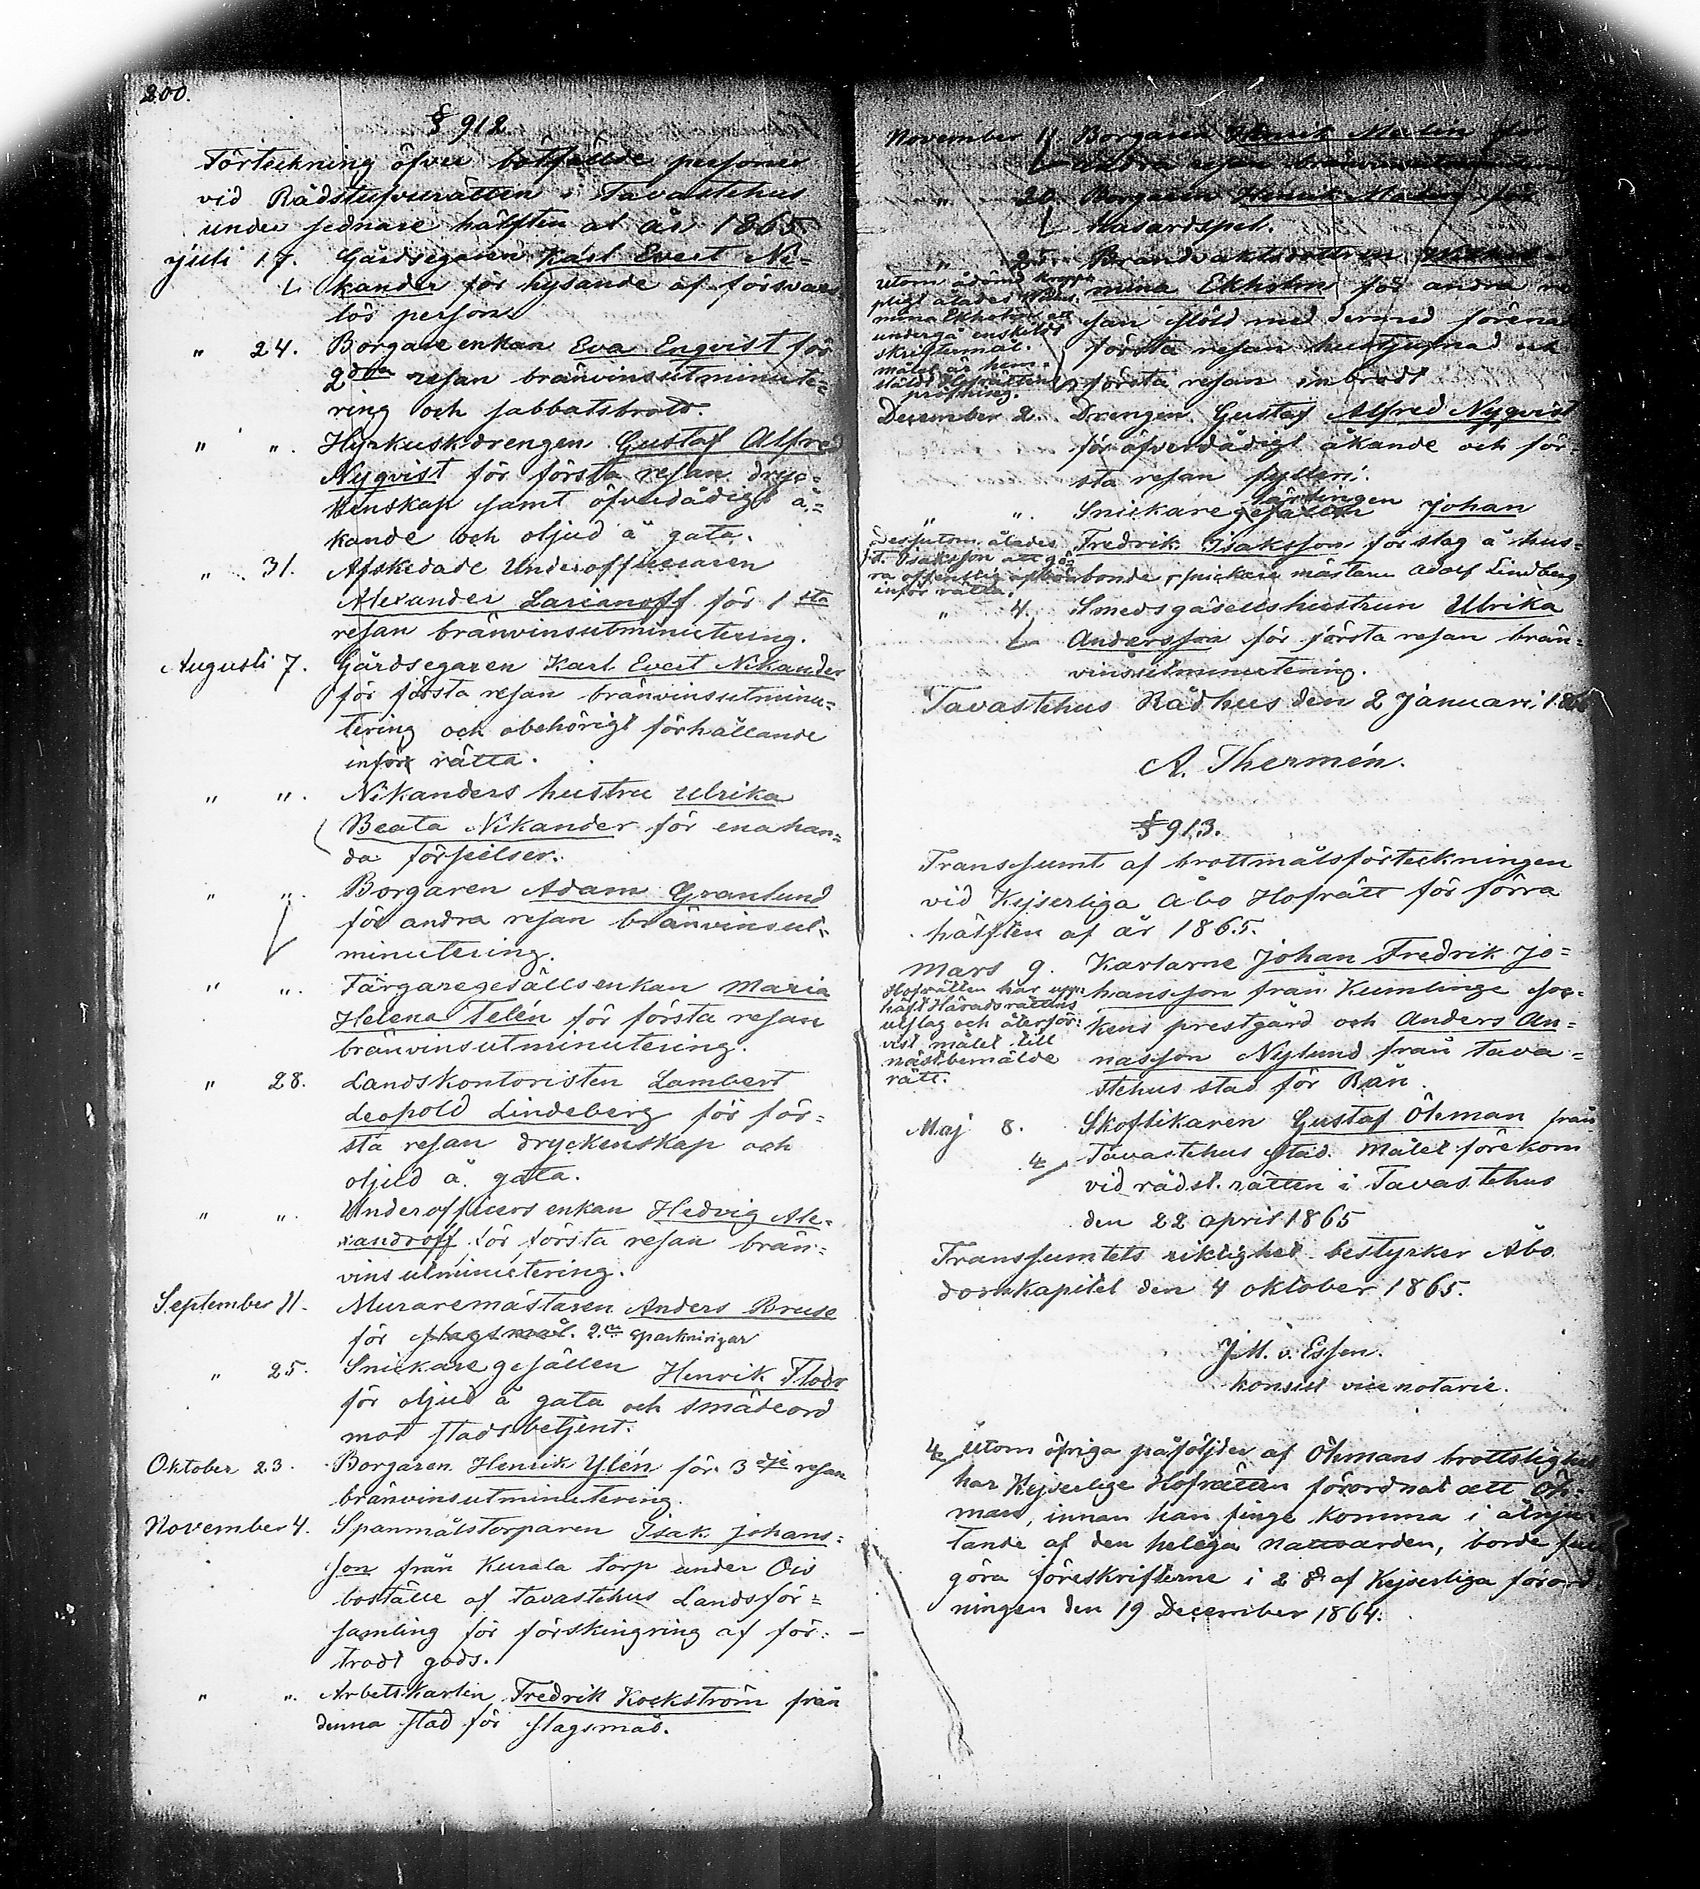 200.
§ 912
Förteckning öfver botfällde personer
vid Rådstufvurätten i Tavastehus
under sednare hälften af år 1865
Juli 17. Gårdsegaren Karl Evert Ni-
kander för hysande af försvars
lös person.
" 24. Borgare enkan Eva Enqvist för
2dra resan bränvinsutminute-
ring och sabbatsbrott.
" ". Hyrkuskdrengen Gustaf Alfred
Nyqvist för första resan dryc-
kenskap samt öfverdådigt å-
kande och oljud å gata.
" 31. Afskedade Underofficeraren
Alexander Larianoff för 1sta
resan bränvinsutminutering.
Augusti 7. Gårdsegaren Karl Evert Nikander
för första resan bränvinsutminu-
tering och obehörigt förhållande
inför rätta.
" ". Nikanders hustru Ulrika
Beata Nikander för enahan-
da förseelser.
" ". Borgaren Adam Granlund
för andra resan bränvinsut-
minutering.
" ". Färgaregesällsenkan Maria
Helena Telén för första resan
bränvinsutminutering.
" 28. Landskontoristen Lambert
Leopold Lindeberg för för-
sta resan dryckenskap och
oljud å gata.
" ". Underofficers enkan Hedvig Ale-
xandroff för första resan brän-
vins utminutering.
September 11. Muraremästaren Anders Bruse
för slagsmål. 2ne sparkningar
" 25. Snickare gesällen Henrik Floor
för oljud å gata och smädeord
mot stadsbetjent.
Oktober 23. Borgaren Henrik Ylén för 3dje resan
bränvinsutminutering.
November 4. Spanmålstorparen Isak Johans-
son från Kurala torp under Ois
boställe af Tavastehus Landsför-
samling för förskingring af för-
trodt gods.
" ". Arbetskarlen Fredrik Kockström från
denna stad för slagsmål.
November 11 Borgaren Henrik Malin för
andra resan bränvinsutminutering
" 20. Borgaren Henrik Malin för
hasardspel.
" 25. Brandvaktsdottren Wilhel-
mina Ekholm för andra re
san stöld med dermed förenad
första resan hustjufnad och
första resan inbrott
utom ådömd kropps
pligt ålades
mina Ekholm att
undergå enskildt
skriftermål.
målet är hem-
stäldt Hofrättens
pröfning.
December 2. Drengen Gustaf Alfred Nyqvist
för öfverdådigt åkande och för-
sta resan fylleri.
" ". Snickare gesällen lärlingen Johan
Fredrik Isaksson för slag å hus-
bonde, snickare mästaren Adolf Lindberg
Dessutom ålades
Isaksson att gö-
ra offentlig afbön
inför rätta.
" 4. Smedsgåsellshustrun Ulrika
Andersson för första resan brän-
vinsutminutering.
Tavastehus Rådhus den 2 Januari 1866
A. Thermén.
§ 913.
Transsumt af brottmålsförteckningen
vid Kejserliga Åbo Hofrätt för förra
hälften af år 1865.
Mars 9. Karlarne Johan Fredrik Jo-
hansson från Kumlinge soc-
kens prestgård och Anders An-
nasson Nylund från Tava-
stehus stad för Rån.
Hofrätten har upp-
häft Häradsrättens
utslag och återför-
vist målet till
nästbemälde
rätt.
Maj 8. Skoflikaren Gustaf Öhman från
Tavastehus stad. Målet förekom
vid rådst. rätten i Tavastehus
den 22 april 1865
Transsumtets riktighet bestyrker Åbo
domkapitel den 4 oktober 1865.
J. M. v. Essen.
konsist vice notarie.
Utom öfriga påföljder af Öhmans brottslighet
har Kejserlige Hofrätten förordnat att Öh-
man, innan han finge komma i åtnju-
tande af den heliga nattvarden, borde full
göra föreskrifterne i 2 § af Kejserliga förord
ningen den 19 December 1864.